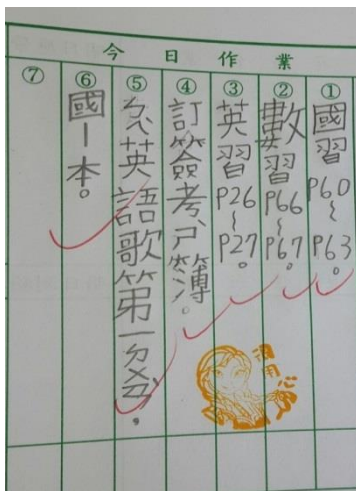 今日作業
① 國習P60~P63。
② 數習P66~P67。
③ 英習P26~P27。
④ 訂簽考ㄕˋ簿。
⑤ 英語歌第一
⑥ 國一本。
⑦
用心